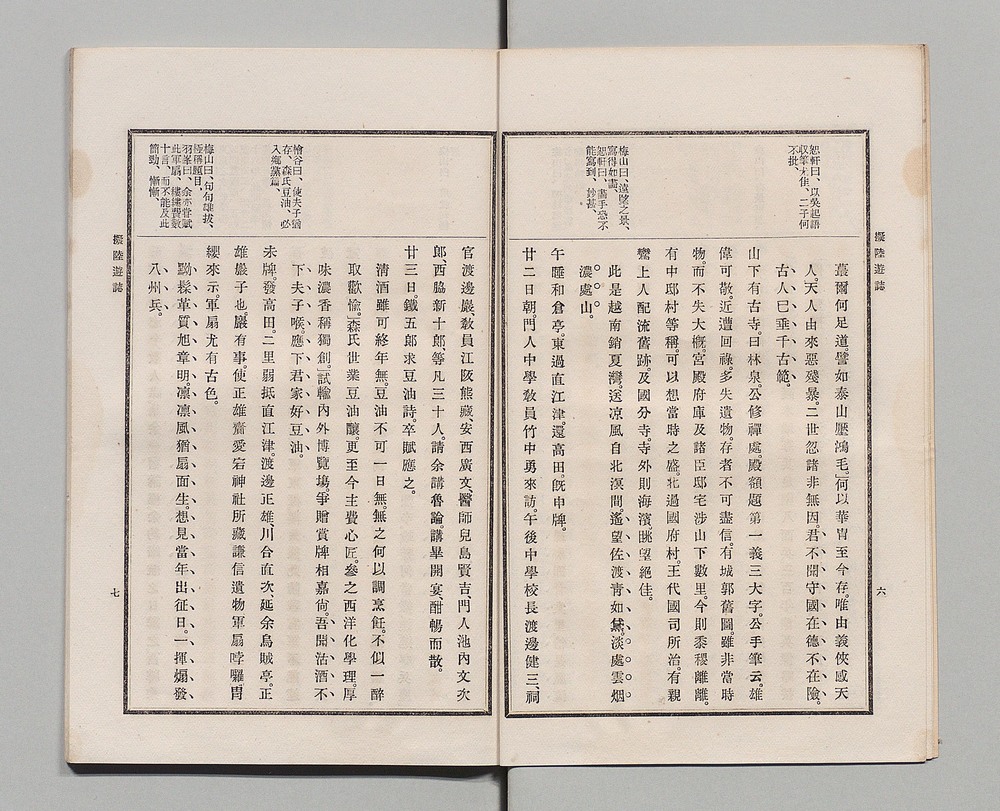 恕軒曰、以吳起語
収筆尤佳、二子何
不批、
梅山曰、遠眺之景、
寫得如畫、
恕軒曰、畫手恐不
能寫到、妙甚、
擬陸遊誌
蕞爾何足道。譬如泰山壓鴻毛。何以華冑至今存。唯由義俠感天
人。天人由來惡殘暴。二世忽諸非無因。君不聞守國在德不在險。
古人已垂千古範。
山下有古寺。曰林泉。公修禪處。殿額題第一義三大字。公手筆云。雄
偉可敬。近遭回祿。多失遺物。存者不可盡信。有城郭舊圖。雖非當時
物。而不失大槪。宮殿府庫及諸臣邸宅涉山下數里。今則黍稷離離。
有中邸村等稱。可以想當時之盛。北過國府村。王代國司所治。有親
鸞上人配流舊跡。及國分寺。寺外則海濱。眺望絕佳。
此是越南銷夏灣。送凉風自北溟間。遙望佐渡靑如黛。淡處雲烟
濃處山。
午睡和倉亭。東過直江津。還高田。旣申牌。
廿二日朝。門人中學敎員竹中勇來訪。午後中學校長渡邊健三、祠
六
檜谷曰、使夫子猶
存、森氏豆油、必
入鄕黨篇、
梅山曰、句句雄拔、
極稱題目、
羽峯曰、余亦甞賦
此軍扇、縷縷費數
十言、而不能及此
簡勁、慚慚、
官渡邊嚴敎員江阪熊藏安西廣文、醫師兒島賢吉、門人池內文次
郎、西脇新十郎等凡三十人。請余講魯論。講畢開宴酣暢而散。
廿三日。鐵五郎求豆油詩。卒賦應之。
淸酒雖可終年無。豆油不可一日無。無之何以調烹飪。不似一醉
取歡愉。森氏世業豆油釀。更至今主費心匠。參之西洋化學理。厚
味濃香稱獨創。試輸內外博覽塲。爭贈賞牌相嘉尙。吾聞沽酒不
下夫子喉。應下君家好豆油。
未牌。發高田。二里弱抵直江津。渡邊正雄、川合直次、延余烏賊亭。正
雄嚴子也。嚴有事。使正雄齎愛宕神社所藏謙信遺物軍扇哱囉冑
纓來示。軍扇尤有古色。
黝髹革質旭章明。凛凛風猶扇面生。想見當年出征日。一揮煽發
八州兵。
擬陸遊誌
七